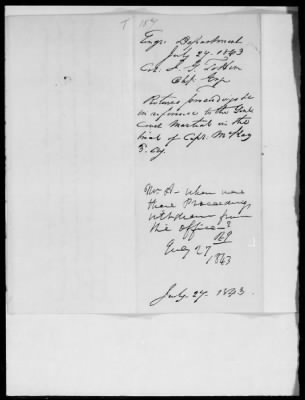 T 184
Engr. Department
July 27. 1843
Col. J. G. Totten
Chf. Engr
Returns proceedings &c
in reference to the Genl
Court Martial in the
trial of Capt. McKay
Mr. A - when were
these Proceedings
withdrawn from
the office?
July 27
1843
July 27. 1843.